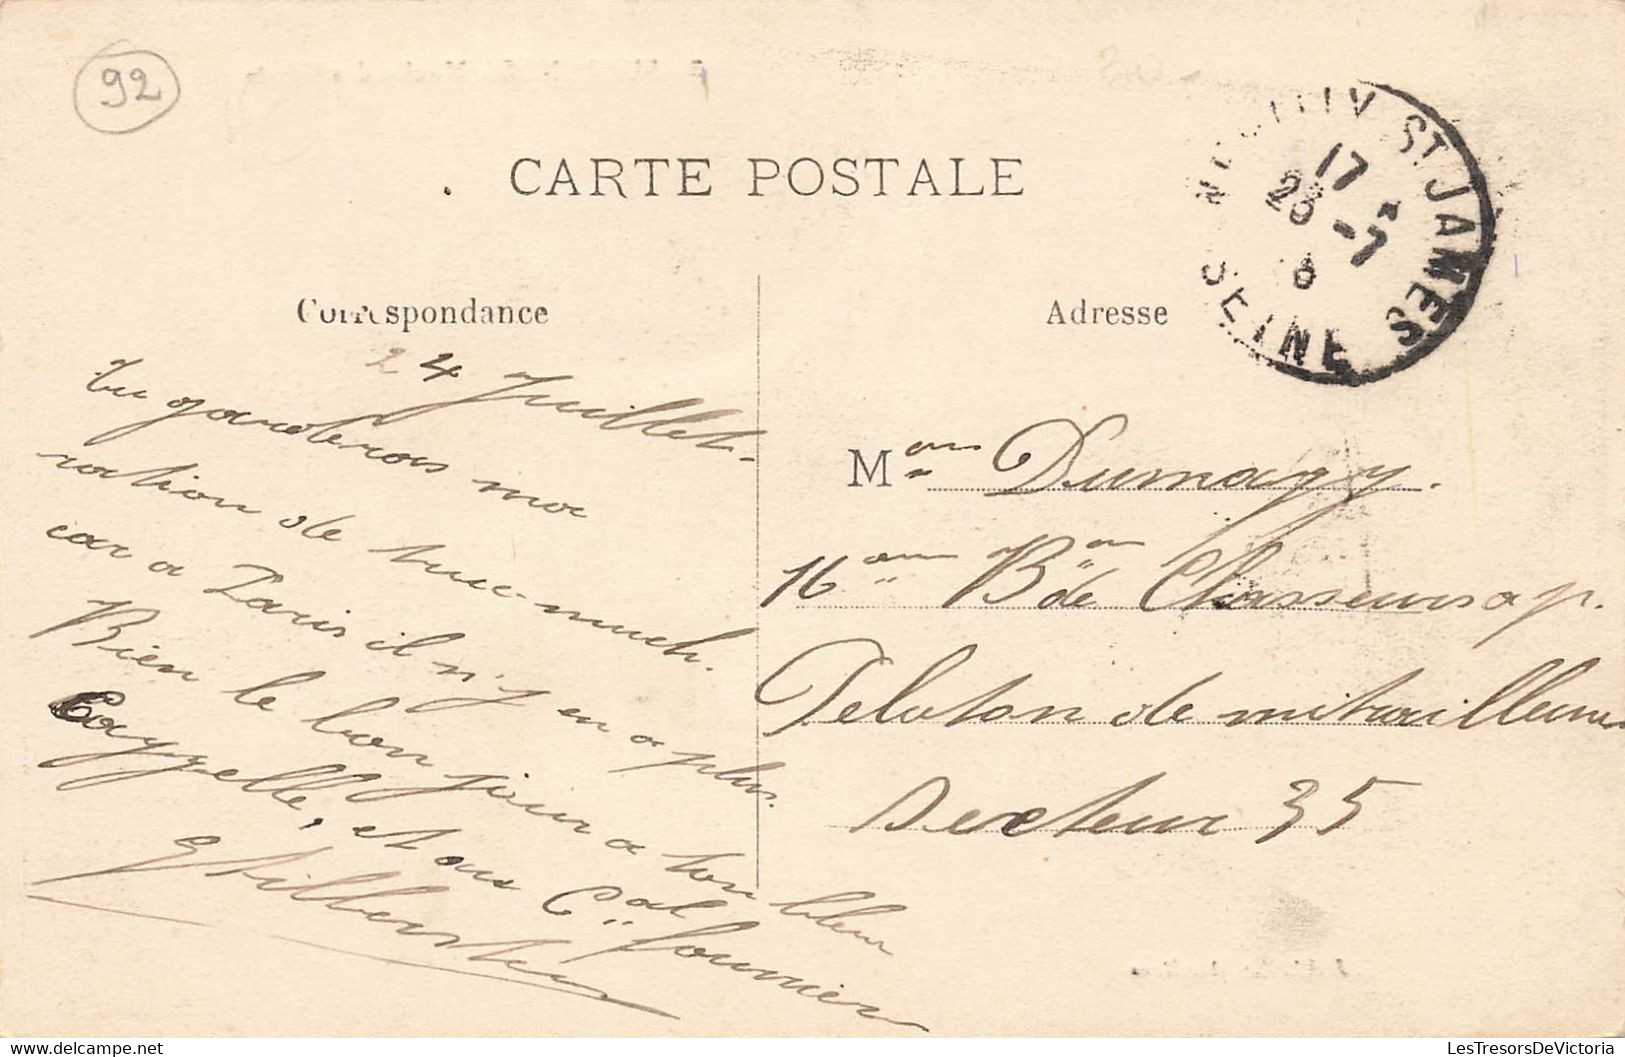 92
CARTE POSTALE
NEUILLY ST JAMES
17
23 -7
6
SEINE
Correspondance
Adresse
24 Juillet.
tu garderas ma
ration de
car a Paris il n'y en a plus.
Bien le bon jour a ton
Cappelle, et au Cal Fournier
Mons Dumagy.
16eme Bon de Chasseurs a p.
Peloton de mitrailleurs
Secteur 35
LesTresorsDeVictoria.com